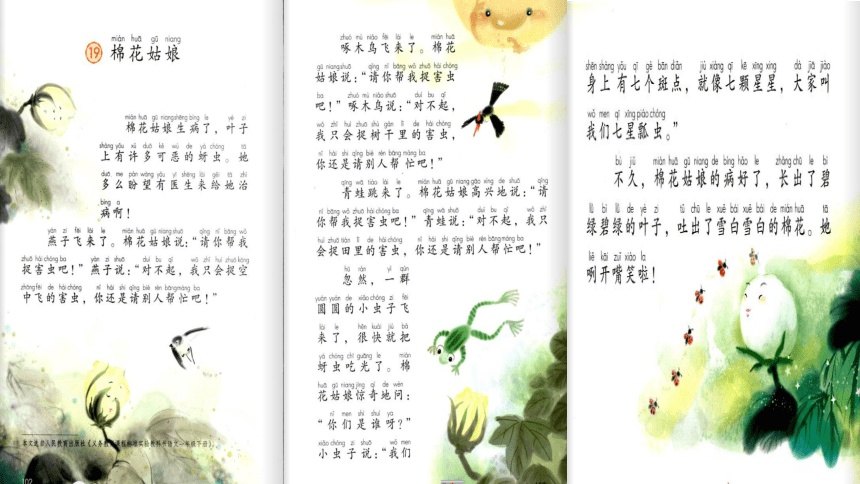 mián huā gū niang
19 棉花姑娘
mián huā gū niang shēng bìng le yè zi
棉花姑娘生病了，叶子
shàng yǒu xǔ duō kě wù de yá chóng tā
上有许多可恶的蚜虫。她
duō me pàn wàng yǒu yī shēng lái gěi tā zhì
多么盼望有医生来给她治
bìng a
病啊！
yàn zi fēi lái le mián huā gū niang shuō qǐng nǐ bāng wǒ
燕子飞来了。棉花姑娘说：“请你帮我
zhuō hài chóng ba yàn zi shuō duì bu qǐ wǒ zhǐ huì zhuō kōng
捉害虫吧！”燕子说：“对不起，我只会捉空
zhōng fēi de hài chóng nǐ hái shi qǐng bié rén bāng máng ba
中飞的害虫，你还是请别人帮忙吧！”
本文选自人民教育出版社《义务教育课程标准实验教科书语文一年级下册》。
102
zhuó mù niǎo fēi lái le mián huā
啄木鸟飞来了。棉花
gū niang shuō qǐng nǐ bāng wǒ zhuō hài chóng
姑娘说：“请你帮我捉害虫
ba zhuó mù niǎo shuō duì bu qǐ
吧！”啄木鸟说：“对不起，
wǒ zhǐ huì zhuō shù gàn lǐ de hài chóng
我只会捉树干里的害虫，
nǐ hái shi qǐng bié rén bāng máng ba
你还是请别人帮忙吧！”
qīng wā tiào lái le mián huā gū niang gāo xìng de shuō qǐng
青蛙跳来了。棉花姑娘高兴地说：“请
nǐ bāng wǒ zhuō hài chóng ba qīng wā shuō duì bu qǐ wǒ zhǐ
你帮我捉害虫吧！”青蛙说：“对不起，我只
huì zhuō tián lǐ de hài chóng nǐ hái shi qǐng bié rén bāng máng ba
会捉田里的害虫，你还是请别人帮忙吧！”
hū rán yì qún
忽然，一群
yuán yuán de xiǎo chóng zi fēi
圆圆的小虫子飞
lái le hěn kuài jiù bǎ
来了，很快就把
yá chóng chī guāng le mián
蚜虫吃光了。棉
huā gū niang jīng qí de wèn
花姑娘惊奇地问：
nǐ men shì shuí ya
“你们是谁呀？”
xiǎo chóng zi shuō wǒ men
小虫子说：“我们
shēn shàng yǒu qī gè bān diǎn jiù xiàng qī kē xīng xing dà jiā jiào
身上有七个斑点，就像七颗星星，大家叫
wǒ men qī xīng piáo chóng
我们七星瓢虫。”
bù jiǔ mián huā gū niang de bìng hǎo le zhǎng chū le bì
不久，棉花姑娘的病好了，长出了碧
lǜ bì lǜ de yè zi tǔ chū le xuě bái xuě bái de mián huā tā
绿碧绿的叶子，吐出了雪白雪白的棉花。她
liě kāi zuǐ xiào la
咧开嘴笑啦！